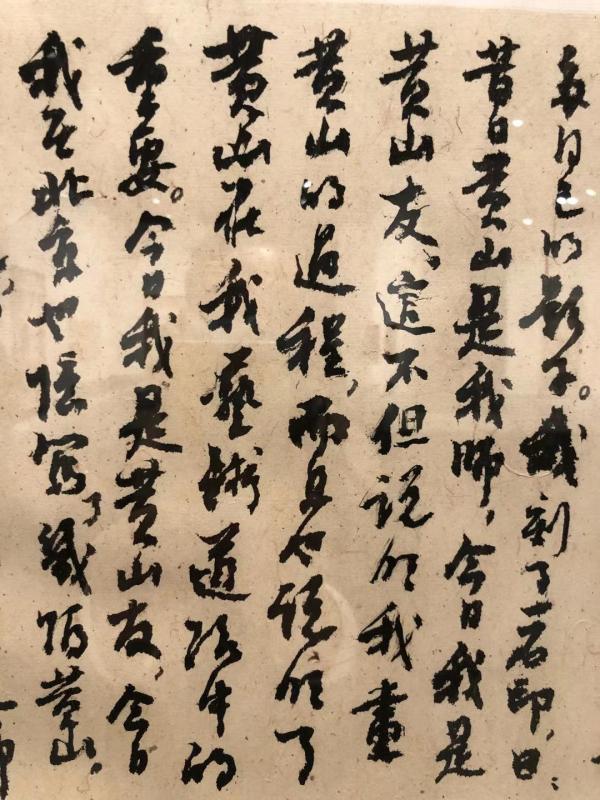 自己的影子。我刻了一石印,曰:
昔日黄山是我师,今日我是
黄山友,這不但说明我畫
黄山的過程,而且也说明了
黄山在我藝術道路中的
重要。今日我是黄山友,今日
我在北京也寫了幾黄山,